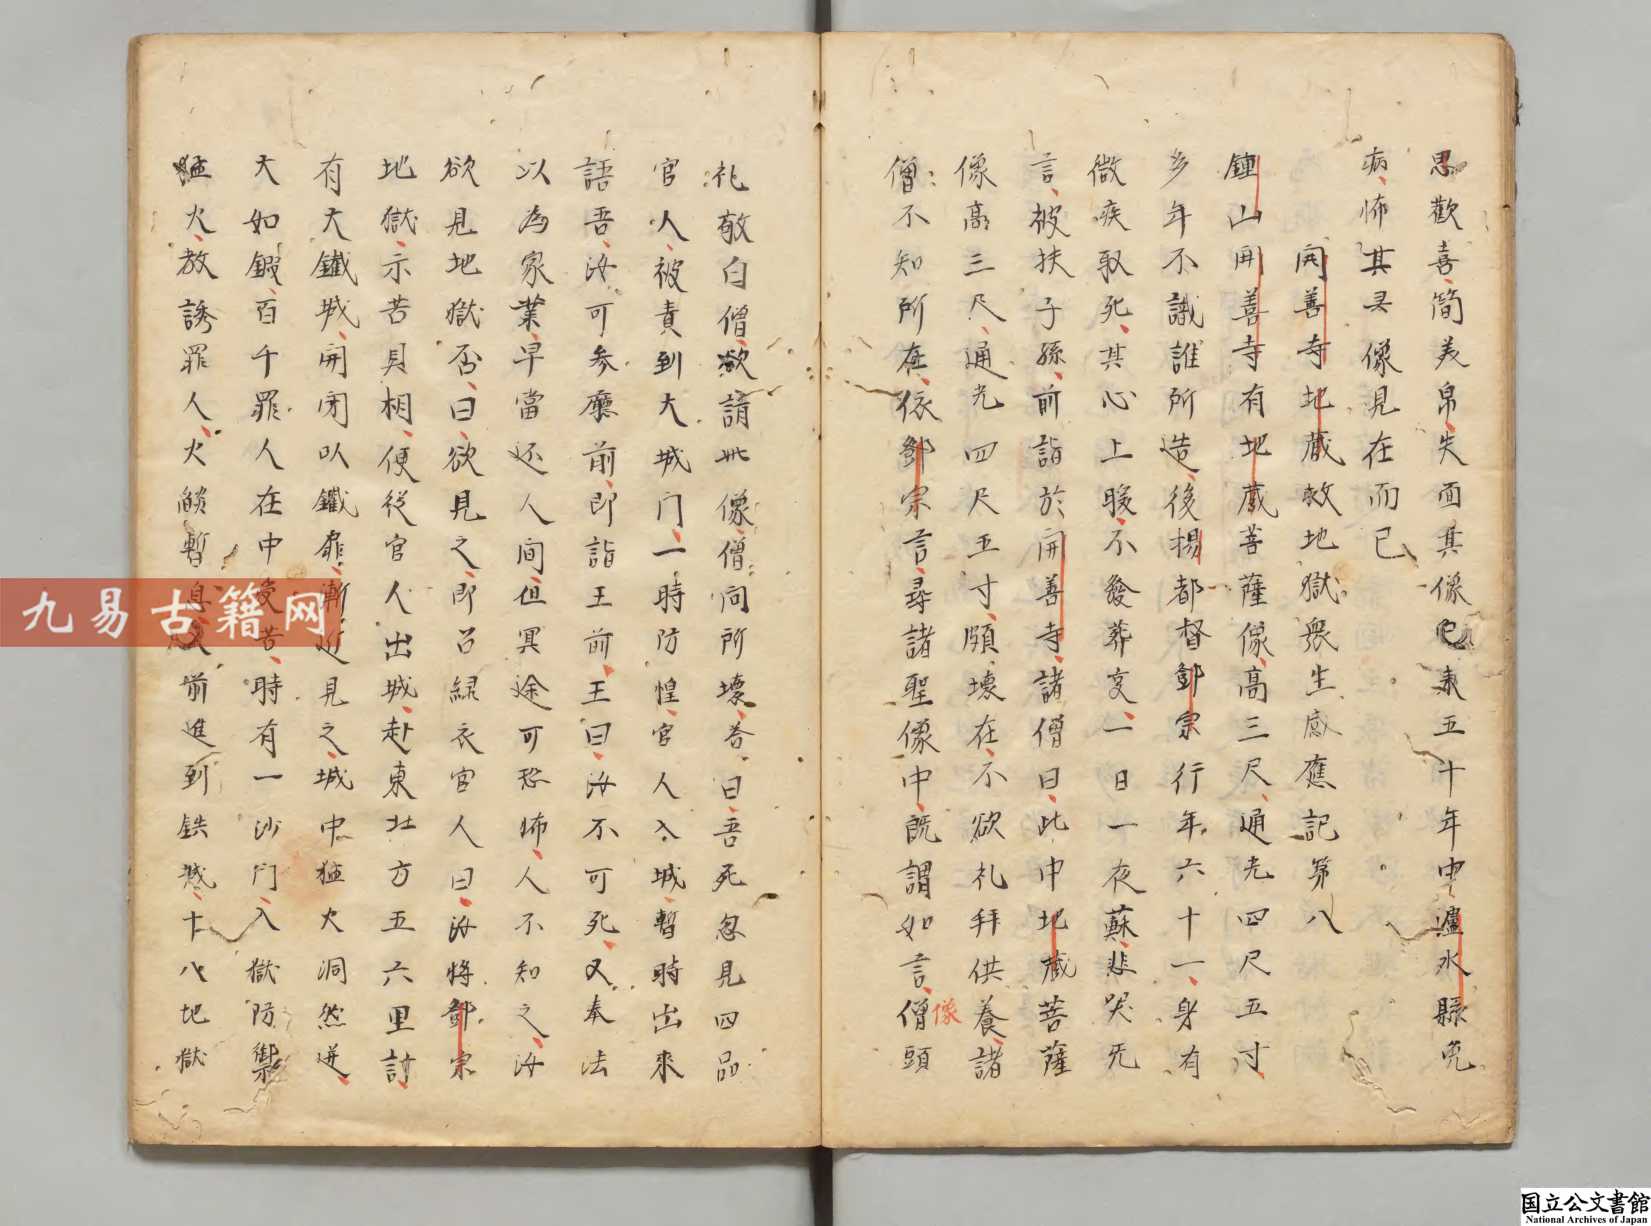 思歡喜簡美帛失面其像色來五十年中瀘水縣免
病怖其畏像見在而已
開善寺地藏救地獄衆生感應記第八
鍾山開善寺有地藏菩薩像高三尺通光四尺五寸
多年不識誰所造後揚都督鄧宗行年六十一身有
微疾取死其心上暖不發葬夏一日一夜蘇悲哭无
言被扶子孫前詣於開善寺諸僧曰此中地藏菩薩
像高三尺通光四尺五寸頗壞在不欲礼拜供養諸
僧不知所在依鄧宗言尋諸聖像中既謂如言僧頭
像
礼敬白僧欲請此像僧问所壞答曰吾死忽見四品
官人被責到大城门一時防惶官人入城暫時出來
語吾汝可参廳前即詣王前王曰汝不可死又奉法
以為家業早當还人间但冥途可恐怖人不知之汝
欲見地獄否曰欲見之即召緑衣官人曰汝將鄧宗
地獄示苦具相便從官人出城赴東北方五六里許
有大鐵城開闭以鐵扉漸近見之城中猛火洞然迸
大如鍛百千罪人在中受苦時有一沙门入獄防禦
猛火教誘罪人火熖暫息又前進到鉄城十八地獄
九易古籍网
国立公文書館
National Archives of Japan